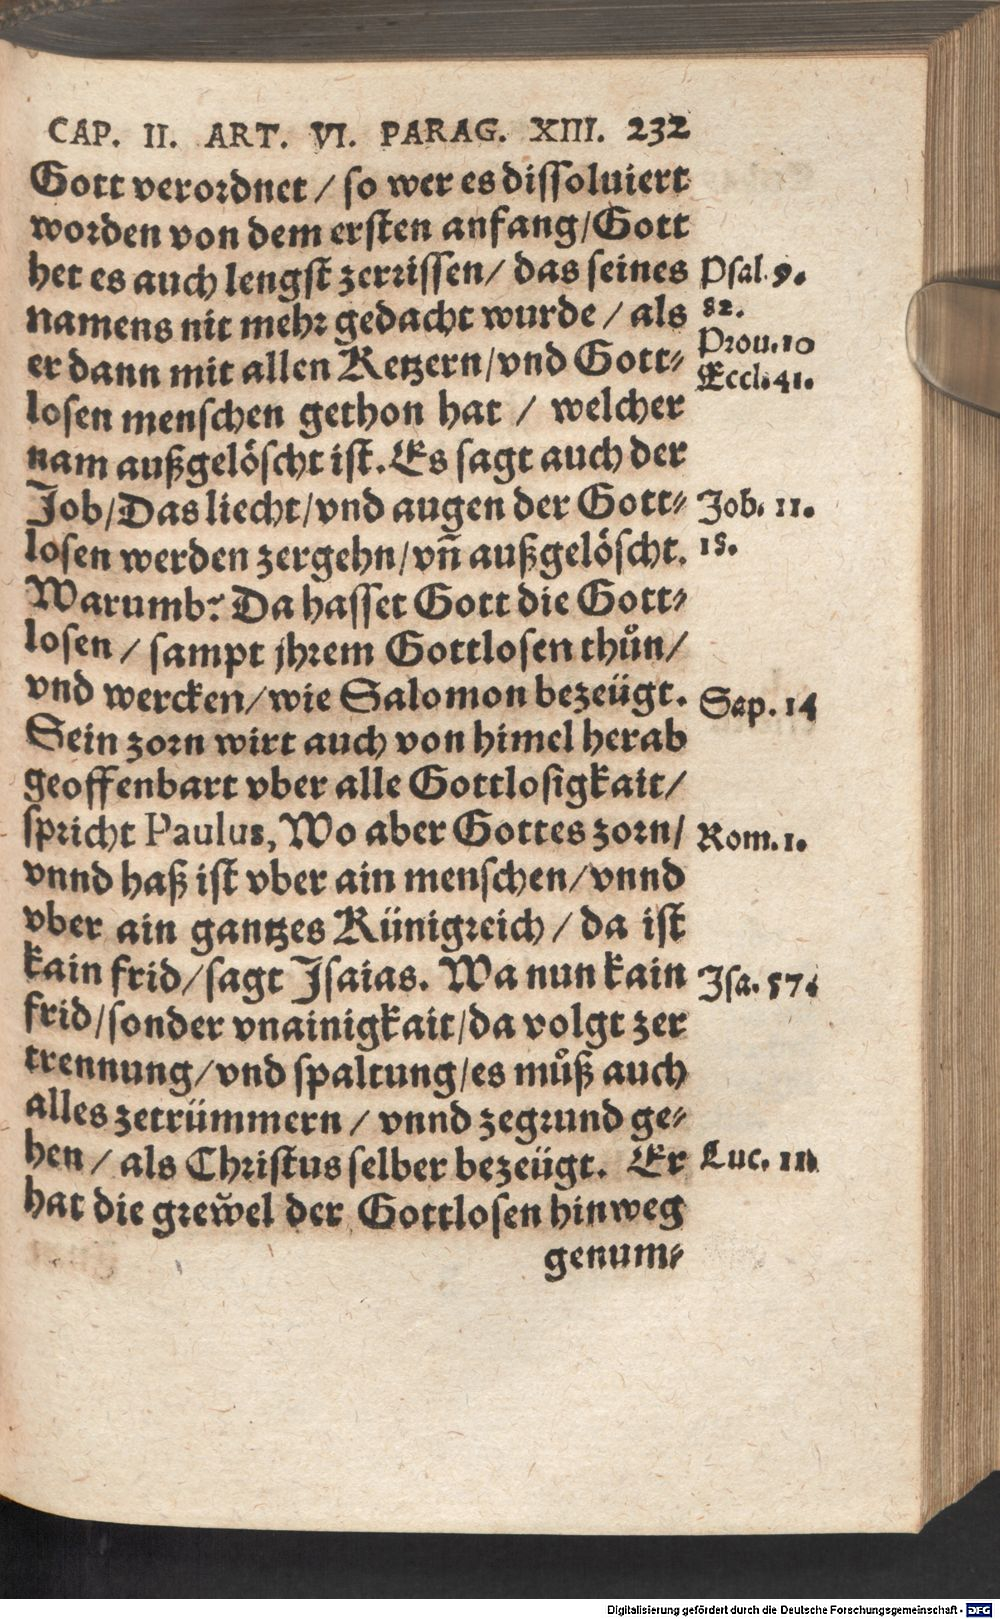 CAP. II. ART. VI. PARAG. XIII. 232
Gott verordnet / so wer es dissoluiert
worden von dem ersten anfang/Gott
het es auch lengst zerrissen/ das seines
Psal. 9.
namens nit mehr gedacht wurde / als
82.
er dann mit allen Ketzern/vnd Gott-
Prou.10
losen menschen gethon hat / welcher
Eccl.41.
nam außgelöscht ist. Es sagt auch der
Job/Das liecht/vnd augen der Gott-
Job. 11.
losen werden zergehn/vñ außgelöscht.
18.
Warumb? Da hasset Gott die Gott-
losen / sampt jhrem Gottlosen thůn/
vnd wercken/wie Salomon bezeügt.
Sap. 14
Sein zorn wirt auch von himel herab
geoffenbart vber alle Gottlosigkait/
spricht Paulus, Wo aber Gottes zorn/
Rom.1.
vnnd haß ist vber ain menschen/vnnd
vber ain gantzes Künigreich / da ist
kain frid/sagt Isaias. Wa nun kain
Isa. 57.
frid/sonder vnainigkait/da volgt zer
trennung/vnd spaltung/es můß auch
alles zetrümmern / vnnd zegrund ge-
hen / als Christus selber bezeügt. Er
Luc. 11
hat die grew̆el der Gottlosen hinweg
genum-
Digitalisierung gefördert durch die Deutsche Forschungsgemeinschaft - DFG